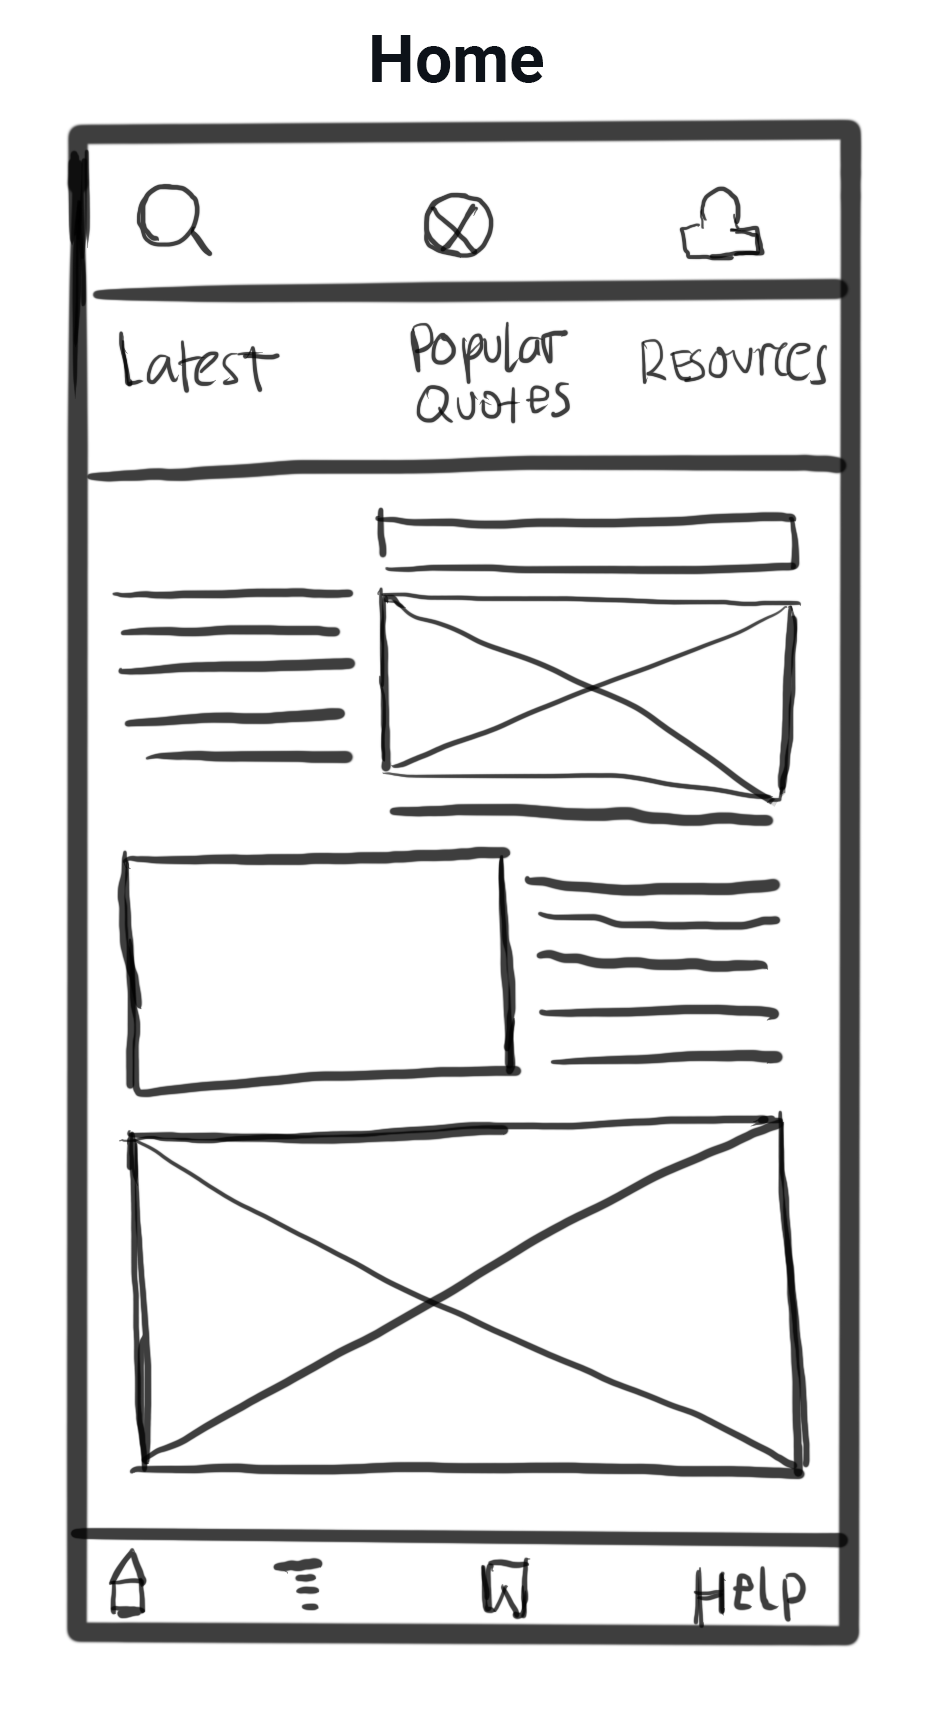 Home
Latest
Popular
Quotes
Resources
Help